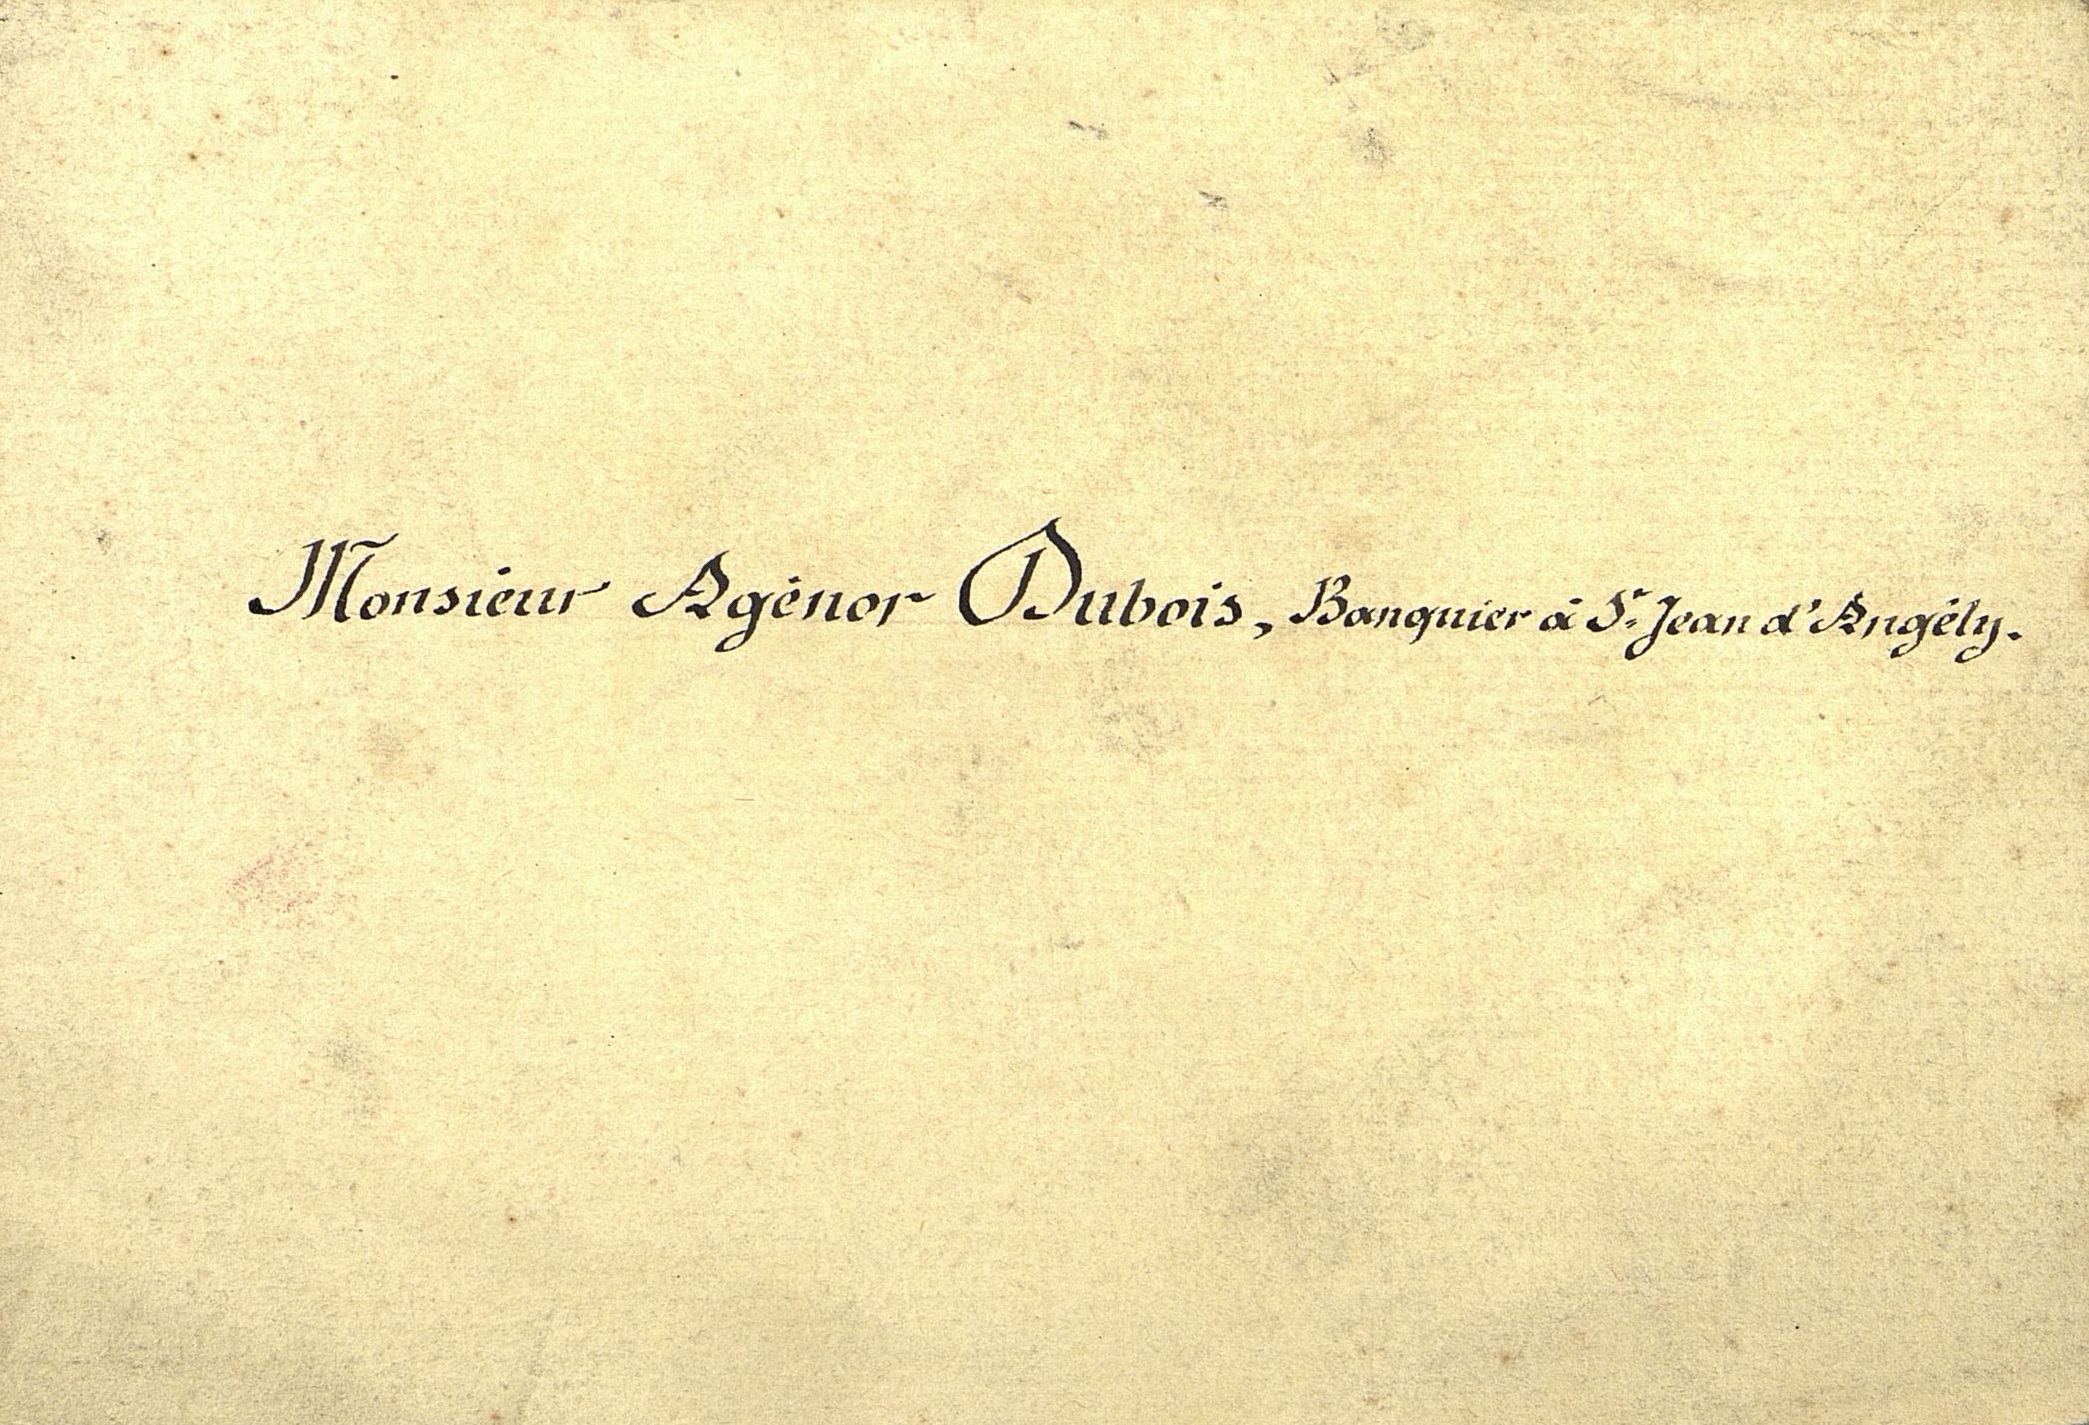 Monsieur Agénor Dubois, Banquier à St. Jean d'Angély.